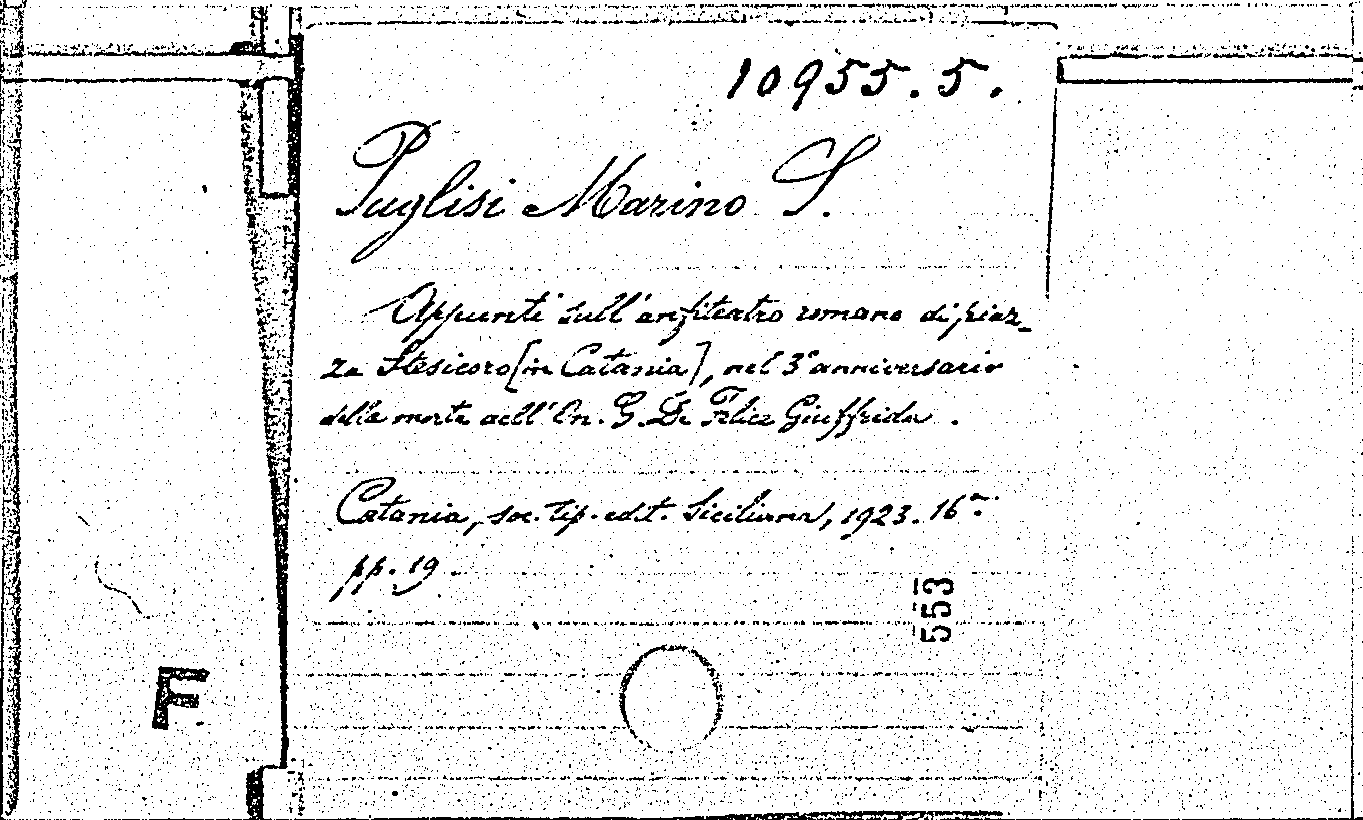 10955.5.
Puglisi Marino S.
Appunti sull'anfiteatro romano di piaz-
za Stesicoro [in Catania], nel 3° anniversario
della morte dell'On. G. De Felice Giuffrida.
Catania, soc. tip. edit. Siciliana, 1923. 16°
pp. 19
553
F